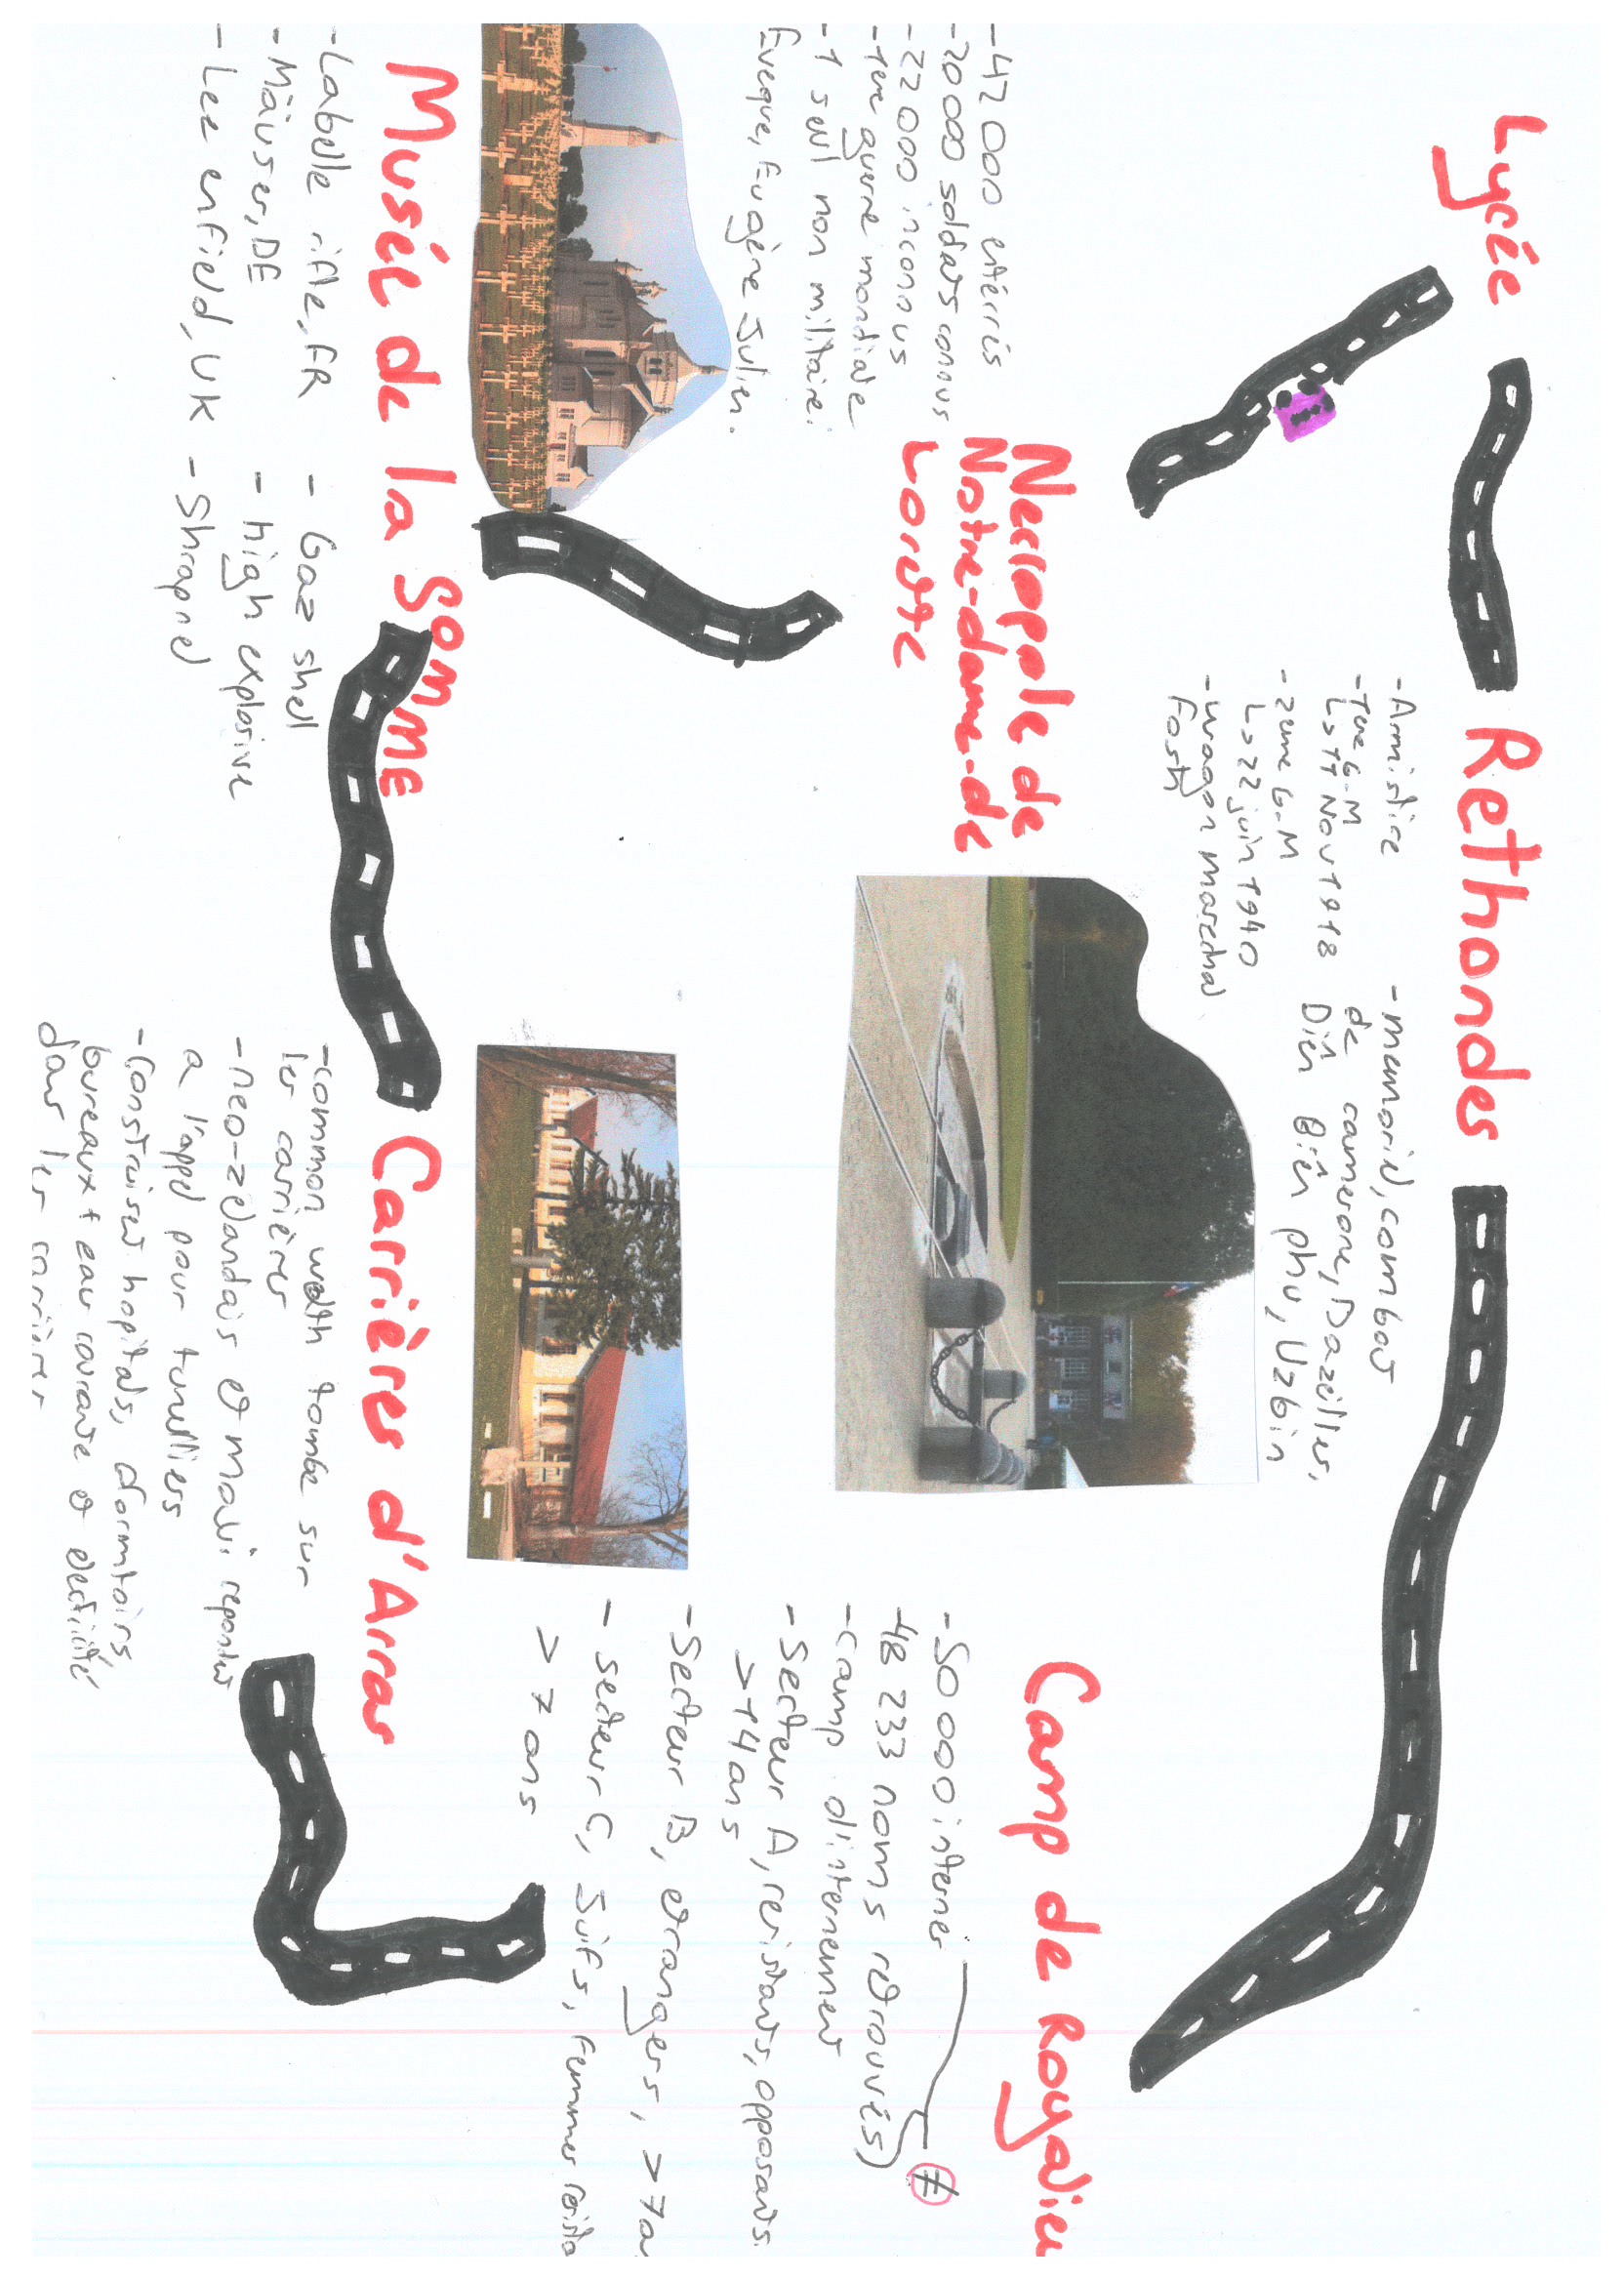 Lycée
Rethondes
-Armistice
-1ère G.M
↳ 11 Nov 1918
-2ème G.M
↳ 22 juin 1940
-wagon marechal
Fosh
-memoriel, combat
de camerone, Dazeilles,
Diên Biên phu, Uzbin
Camp de Royallieu
-50 000 internes
-48 233 noms retrouvés
≠
-camp d'internement
-Secteur A, resistants, opposants.
>14 ans
-Secteur B, etrangers, >7 an
-secteur C, Juifs, Femmes resista
> 7 ans
Carrières d'Arras
-common welth tombe sur
les carrières
-neo-zelandais et maori repondent
a l'appel pour tunelliers
-Construisent hopitals, dormtoirs,
bureaux + eau courante et electicité
dans les carrières
Musée de la SOMME
-Labelle rifle, FR
-Mäuser, DE
-Lee enfield, UK
-Gaz shell
-high explosive
-Shrapnel
Necropole de
Notre-dame-de
Lorette
-42 000 entérrés
-20 000 soldats conous
-22 000 inconous
-1ere guerre mondiale
-1 seul non militaire:
Eveque, Eugène Julien.